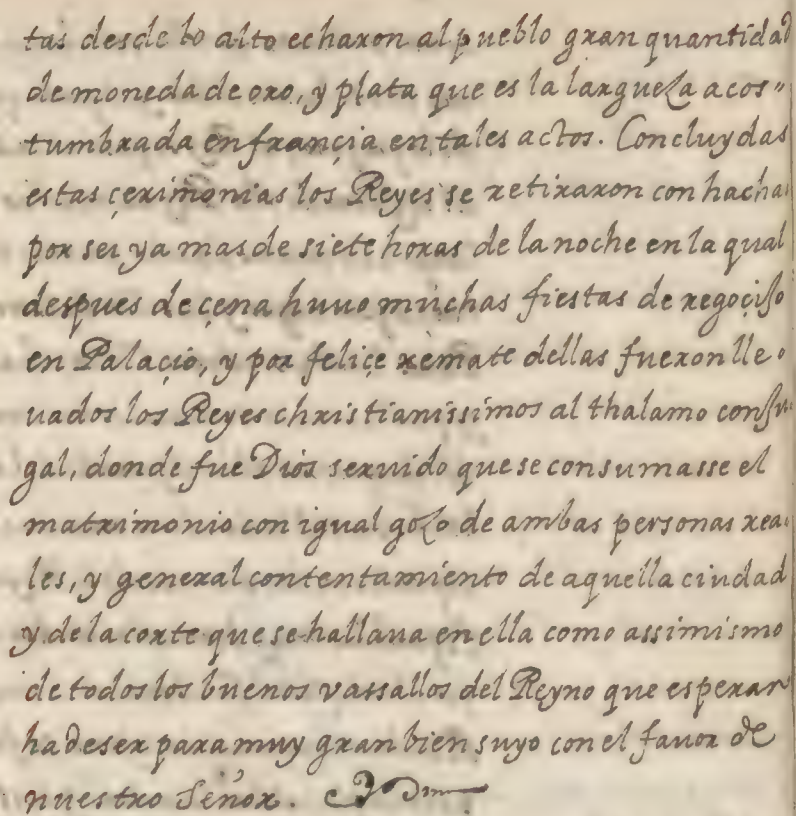 tas desde lo alto echaron al pueblo gran quantidad
de moneda de oro, y plata que es la largueza acos"
tumbrada en françia en tales actos. Concluydas
estas çerimonias los Reyes se retiraron con hachas
por ser ya mas de siete horas de la noche en la qual
despues de çena huuo muchas fiestas de regoçijo
en Palaçio, y por feliçe remate dellas fueron lle
uados los Reyes christianissimos al thalamo conju
gal, donde fue Dios seruido que se consumasse el
matrimonio con igual gozo de ambas personas rea
les, y general contentamiento de aquella ciudad
y de la corte que se hallaua en ella como assimismo
de todos los buenos vassallos del Reyno que esperan
ha de ser para muy gran bien suyo con el fauor de
nuestro Señor.